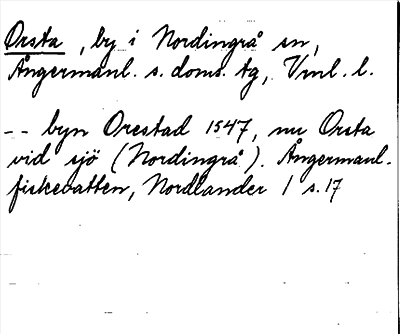 Orsta, by i Nordingrå sn,
Ångermanl. s. doms. tg, Vnl. l.
-- byn Orestad 1547, nu Orsta
vid sjö (Nordingrå). Ångermanl.
fiskevatten, Nordlander 1 s. 17